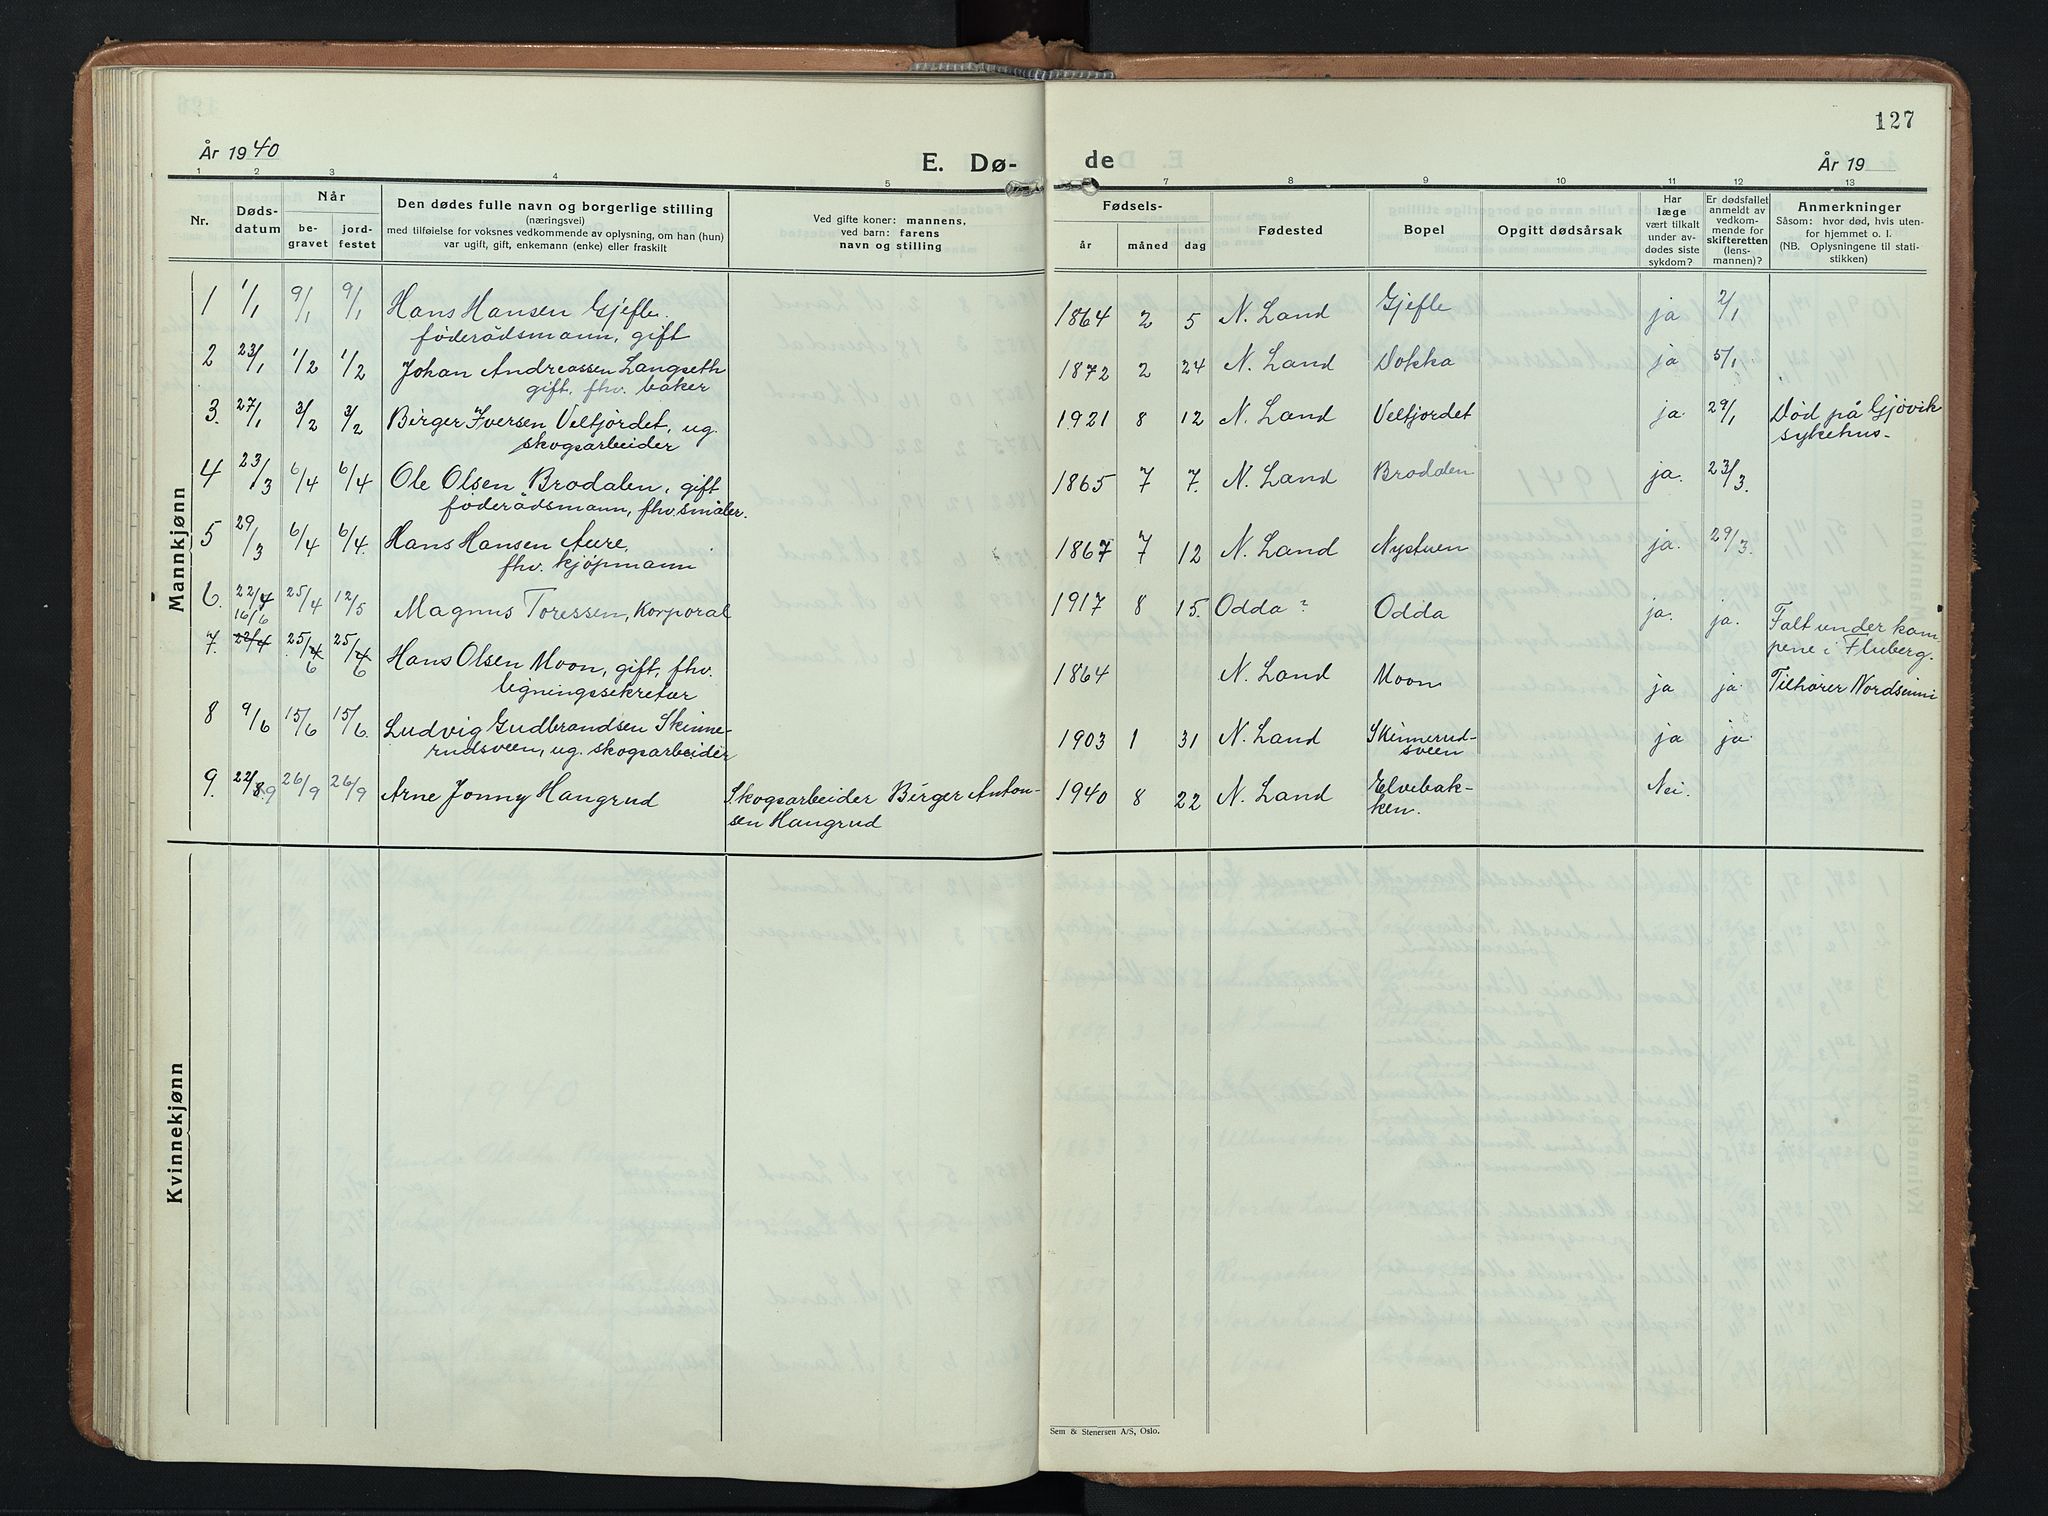 127
År 1940
E. Dø-
de
År 19
1 2 3 4 5
7 8 9 10 11 12 13
Nr.
Døds-
datum
Når
be-
gravet
jord-
festet
Den dødes fulle navn og borgerlige stilling
(næringsvei)
med tilføielse for voksnes vedkommende av oplysning, om han (hun)
var ugift, gift, enkemann (enke) eller fraskilt
Ved gifte koner: mannens,
ved barn: farens
navn og stilling
Fødsels-
år måned dag
Fødested
Bopel
Opgitt dødsårsak
Har
læge
vært tilkalt
under av-
dødes siste
sykdom?
Er dødsfallet
anmeldt av
vedkom-
mende for
skifteretten
(lens-
mannen)?
Anmerkninger
Såsom: hvor død, hvis uten-
for hjemmet o. l.
(NB. Oplysningene til stati-
stikken)
Mannkjønn
1 1/1 9/1 9/1 Hans Hansen Gjefle. 1864 2 5 N. Land Gjefle ja 2/1
föderådsmann, gift
2 23/1 1/2 1/2 Johan Andreassen Langseth 1872 2 24 N. Land Dokka ja 5/1
gift, fhv. baker
3. 27/1 3/2 3/2 Birger Iversen Velfjordet, ug. 1921 8 12 N. Land Velfjordet ja. 29/1 Död på Gjövik
skogsarbeider sykehus-
4 23/3 6/4 6/4 Ole Olsen Brodalen, gift 1865 7 7. N. Land Brodalen ja. 23/3.
föderådsmann, fhv. småler.
5 29/3 6/4 6/4. Hans Hansen Aure, 1867 7 12 N. Land Nystuen ja. 29/3.
fhv. kjöpmann
6. 22/4 25/4 12/5 Magnus Toressen, Korporal 1917 8 15. Odda? Odda ja. ja. Falt under kam-
pene i Fluberg.
16/6
7. 22/4 25/4 6 25/4 6 Hans Olsen Moon, gift, fhv. 1864 N. Land Moon ja ja. Tilhører Nordsinni
ligningssekretær
8 9/6 15/6 15/6. Ludvig Gudbrandsen Skinne- 1903 1 31 N. Land Skinnerud- ja ja.
rudsveen, ug. skogsarbeider sveen
9. 22/8 9 26/9 26/9 Arne Jonny Hangrud Skogsarbeider Birger Anton- 1940 8 22 N. Land Elvebak- Nei.
sen Hangrud ken.
Kvinnekjønn
Sem & Stenersen A/S, Oslo.